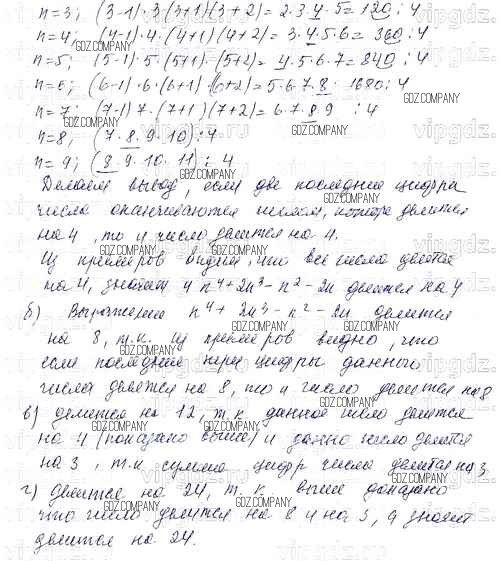 n=3; (3-1)·3(3+1)(3+2)=2·3·4·5=120 ⋮ 4
n=4; (4-1)·4·(4+1)(4+2)=3·4·5·6=360 ⋮ 4
n=5; (5-1)·5·(5+1)·(5+2)=4·5·6·7=840 ⋮ 4
n=6; (6-1)·6·(6+1)·(6+2)=5·6·7·8=1680 ⋮ 4
n=7; (7-1)7·(7+1)(7+2)=6·7·8·9 ⋮ 4
n=8; (7·8·9·10) ⋮ 4
n=9; (8·9·10·11) ⋮ 4
Делаем вывод, если две последние цифры
числа оканчиваются числом, которое делится
на 4, то и число делится на 4.
Из примеров видим, что все числа делятся
на 4, значит и n⁴+2n³-n²-2n делится на 4
б) Выражение n⁴+2n³-n²-2n делится
на 8, т.к. из примеров видно, что
если последние три цифры данного
числа делятся на 8, то и число делится на 8
в) делится на 12, т.к. данное число делится
на 4 (показано выше) и данно число делится
на 3, т.к. сумма цифр числа делится на 3.
г) делится на 24, т.к. выше доказано
что число делится на 8 и на 3, а значит
делится на 24.
GDZ.COMPANY
vipgdz.ru